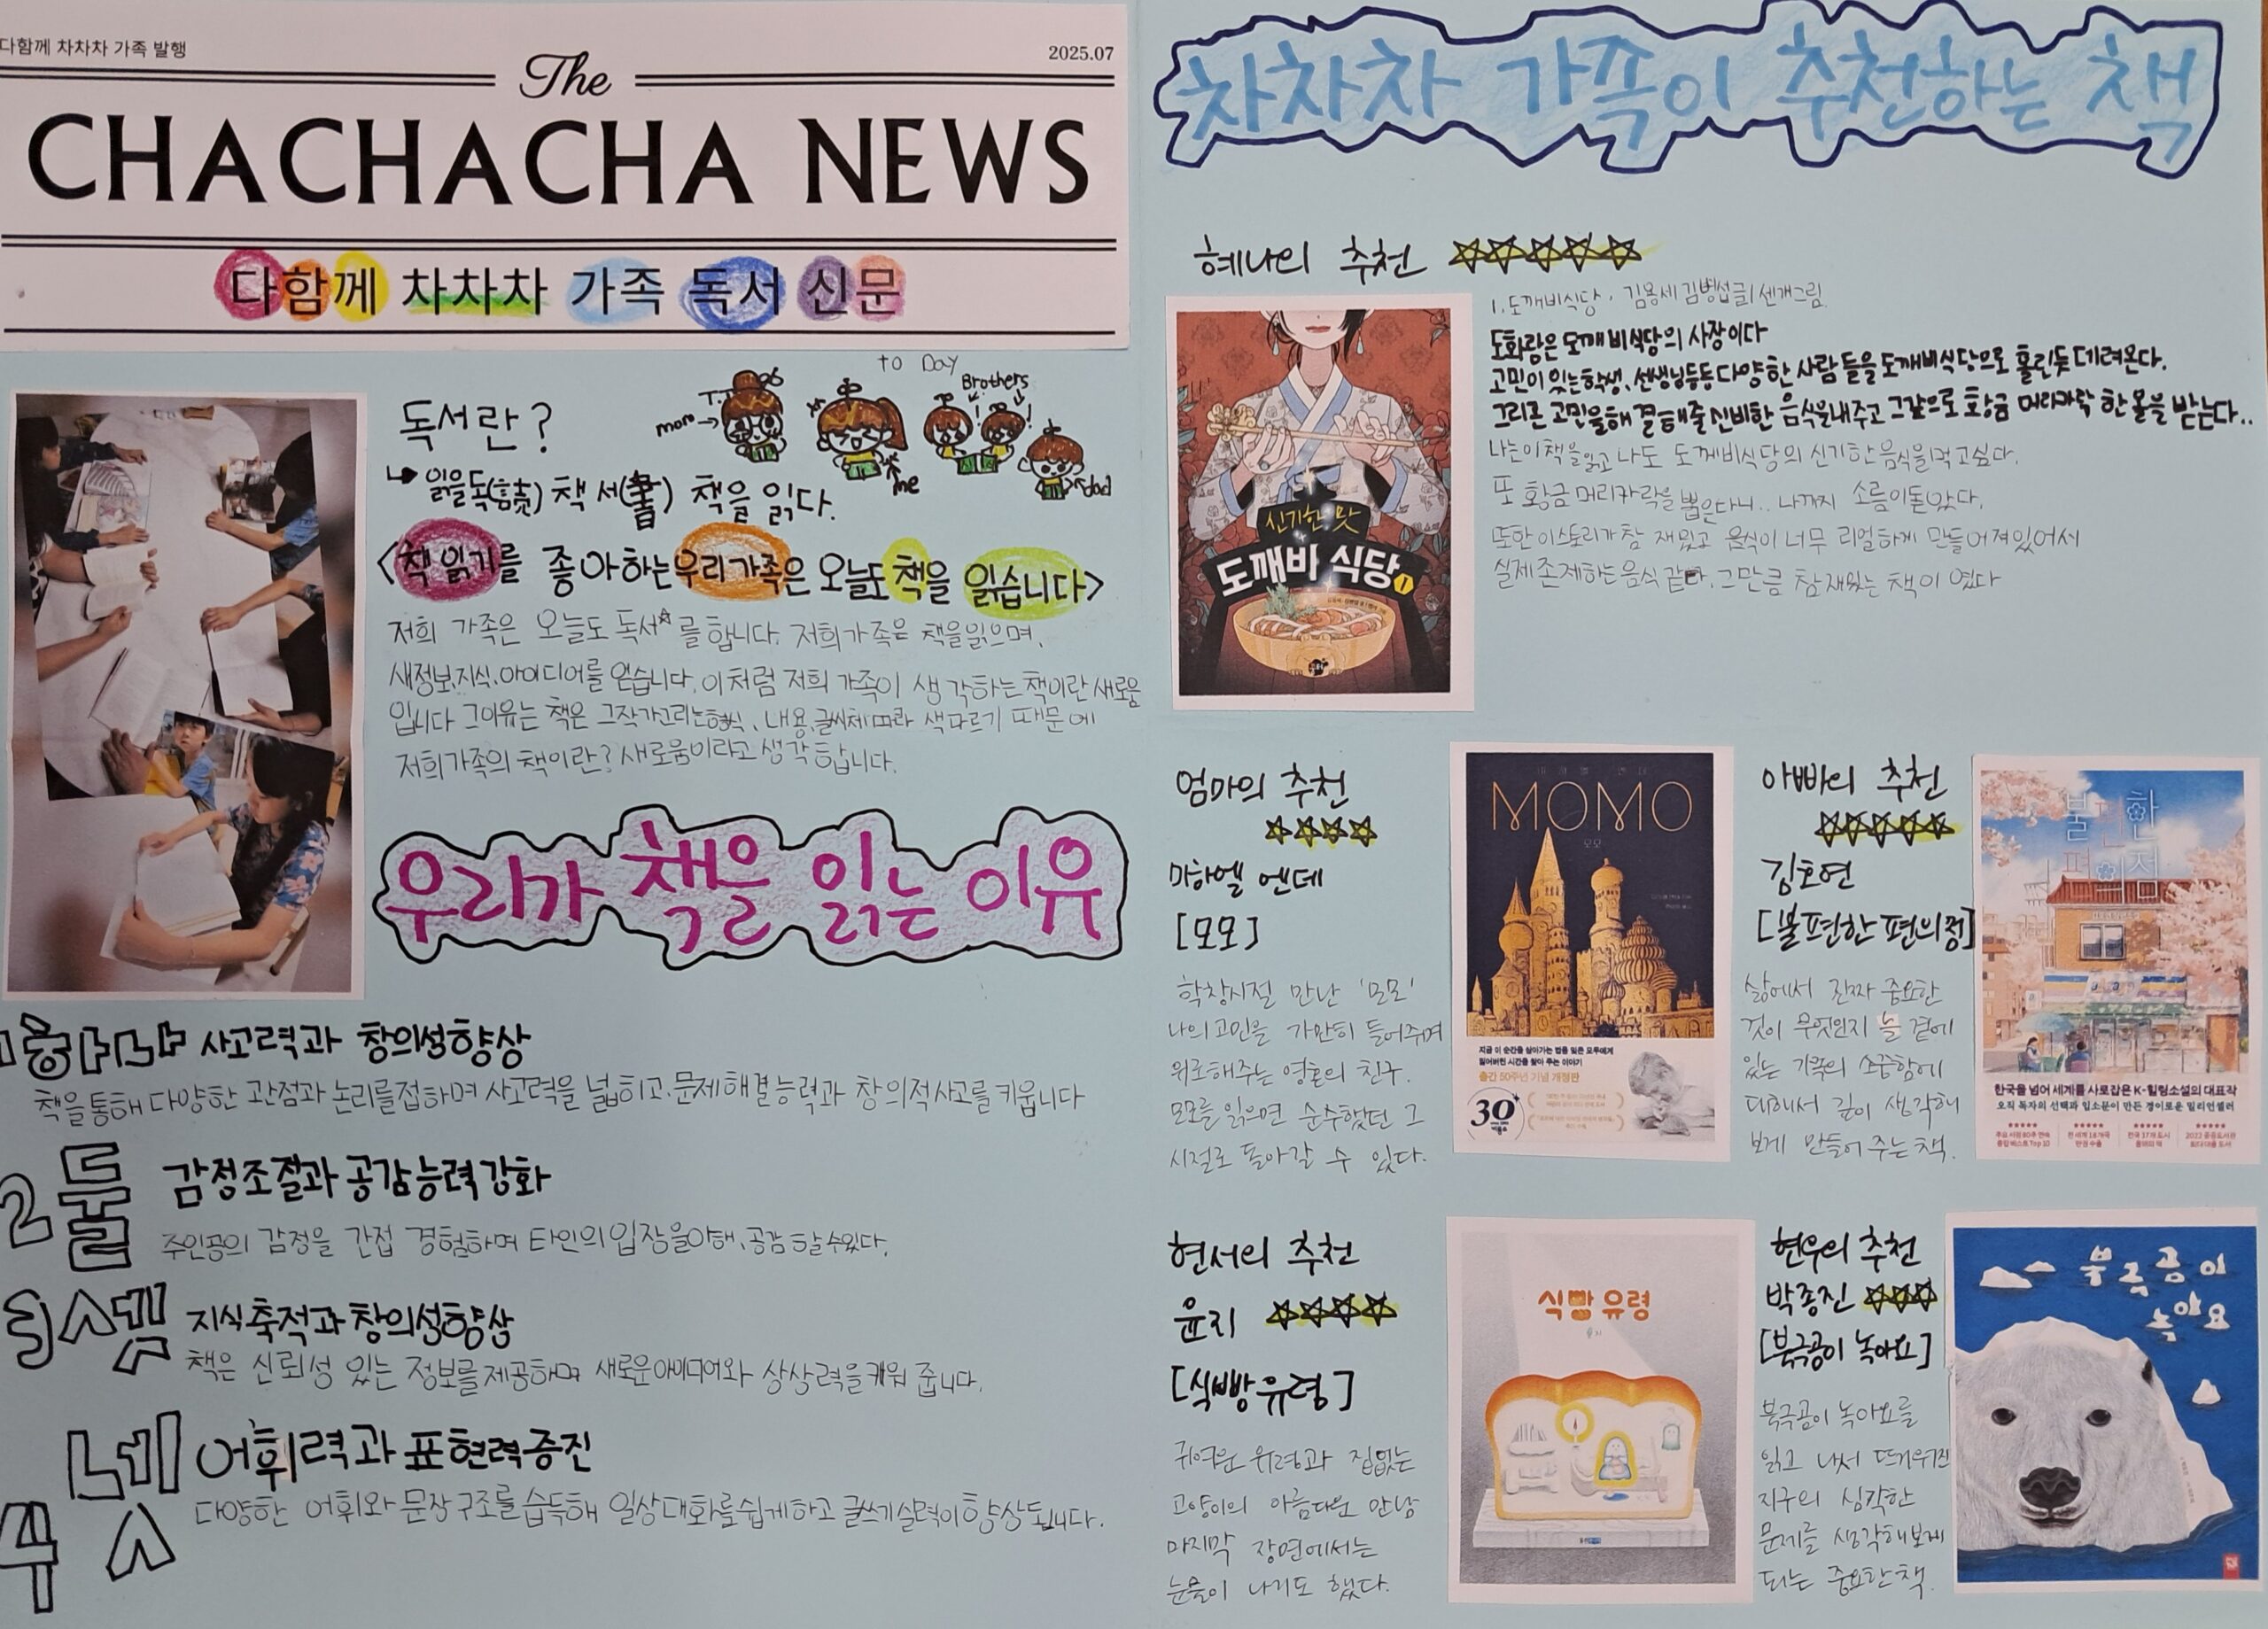 다함께 차차차 가족 발행
2025.07
The
CHACHACHA NEWS
다함께 차차차 가족 독서 신문
to Day
mom
me
Brothers
dad
독서란?
읽을 독(讀) 책 서(書) 책을 읽다.
<책 읽기를 좋아하는 우리가족은 오늘도 책을 읽습니다>
저희 가족은 오늘도 독서☆를 합니다. 저희가족은 책을읽으며,
새정보,지식,아이디어를 얻습니다. 이처럼 저희 가족이 생각하는 책이란 새로움
입니다 그이유는 책은 그작가그리는형식, 내용,글씨체따라 색다르기 때문에
저희가족의 책이란? 새로움이라고 생각합니다.
우리가 책을 읽는 이유
1하나 사고력과 창의성향상
책을통해 다양한 관점과 논리를접하며 사고력을 넓히고,문제해결능력과 창의적사고를 키웁니다
2둘 감정조절과 공감능력강화
주인공의 감정을 간접 경험하며 타인의입장을이해,공감할수있다.
3셋 지식축적과창의성향상
책은 신뢰성 있는 정보를제공하며 새로운아이디어와 상상력을키워 줍니다.
4넷 어휘력과 표현력증진
다양한 어휘와 문장 구조를 습득해 일상대화를쉽게하고 글쓰기실력이향상됩니다.
차차차 가족이 추천하는 책
혜나의 추천 ☆☆☆☆☆
1.도깨비식당 · 김용세 김병섭글 | 센개그림
도화랑은 도깨비식당의 사장이다
고민이 있는학생, 선생님등등다양한 사람들을 도깨비식당으로 홀린듯데려온다.
그리곤 고민을해결해줄신비한 음식을내주고 그값으로 황금 머리카락 한 올을 받는다..
나는이책을읽고 나도 도깨비식당의 신기한음식을먹고싶다.
또 황금머리카락을 뽑은다니.. 나까지 소름이돋았다.
또한이스토리가참 재밌고 음식이 너무 리얼하게 만들어져있어서
실제존재하는음식 같다. 그만큼 참재있는 책이 였다
신기한 맛
도깨비 식당 1
엄마의 추천
☆☆☆☆
미하엘 엔데
[모모]
학창시절 만난 '모모'
나의고민을 가만히 들어주며
위로해주는 영혼의 친구.
모모를 읽으면 순수했던 그
시절로 돌아갈 수 있다.
미하엘 엔데
MOMO
모모
지금 이 순간을 살아가는 법을 잊은 모두에게
잃어버린 시간을 찾아 주는 이야기
출간 50주년 기념 개정판
30
아빠의 추천
☆☆☆☆☆
김호연
[불편한 편의점]
삶에서 진짜 중요한
것이 무엇인지 늘 곁에
있는 가족의 소중함에
대해서 깊이 생각해
보게 만들어 주는 책.
불편한
편의점
한국을 넘어 세계를 사로잡은 K-힐링소설의 대표작
오직 독자의 선택과 입소문이 만든 경이로운 밀리언셀러
현서의 추천
윤지 ☆☆☆☆
[식빵유령]
귀여운 유령과 집없는
고양이의 아름다운 만남
마지막 장면에서는
눈물이 나기도 했다.
식빵 유령
윤지
현우의 추천
박종진 ☆☆☆
[북극곰이 녹아요]
북극곰이 녹아요를
읽고 나서 뜨거워진
지구의 심각한
문제를 생각해보게
되는 중요한책.
북극곰이
녹아요